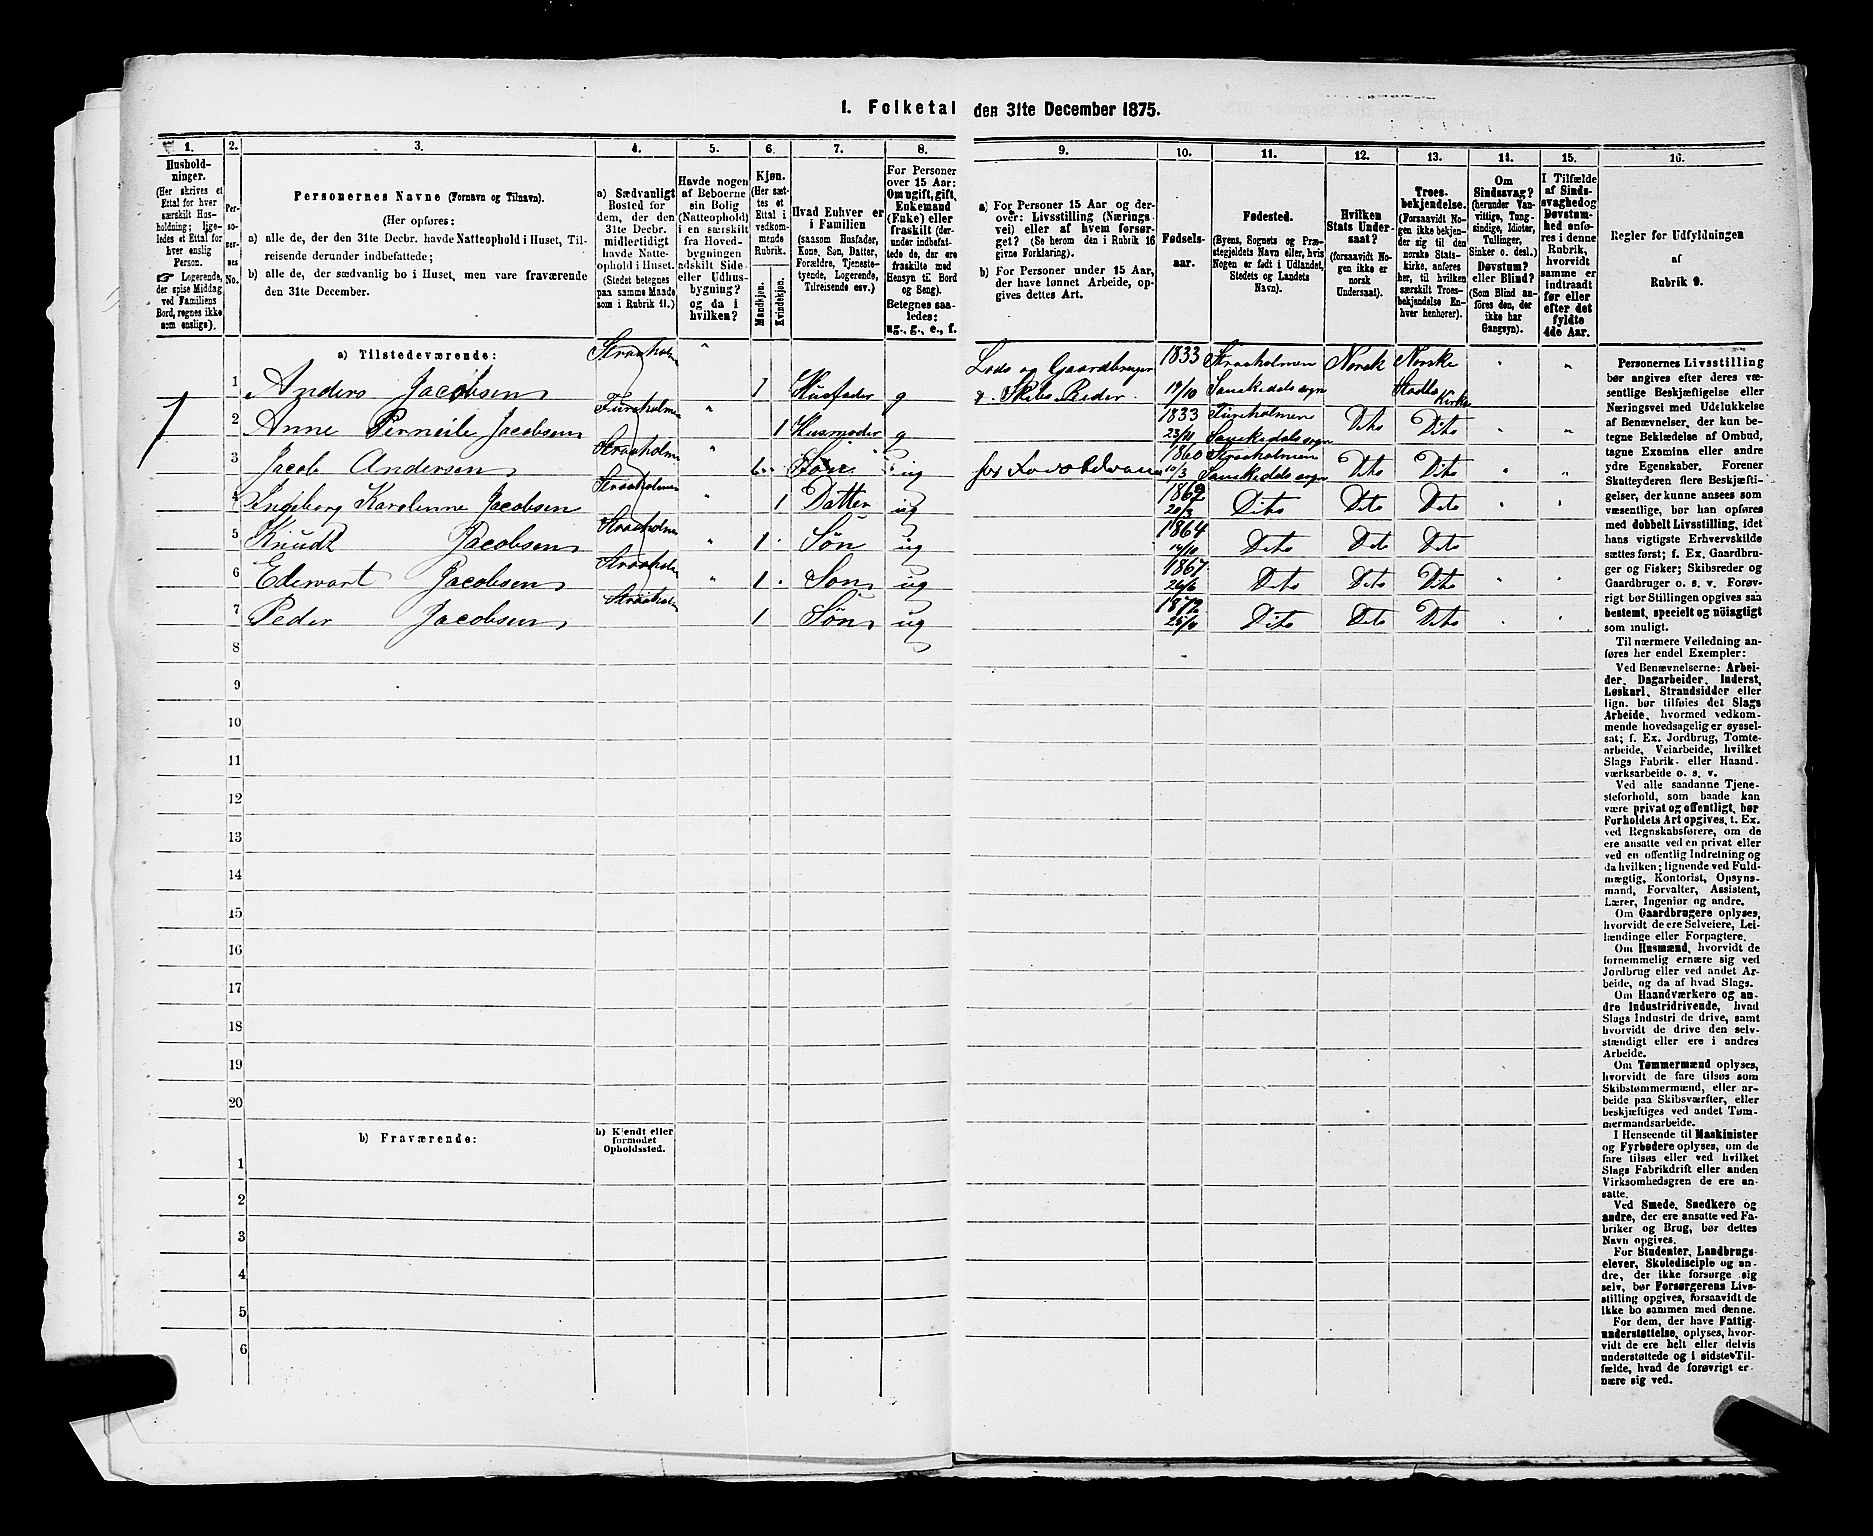 I. Folketal den 31te December 1875.
1. 2. 3. 4. 5. 6. 7. 8. 9. 10. 11. 12. 13. 14. 15. 16.
Husholdninger.
(Her skrives et
Ettal for hver
særskilt Husholdning;
ligeledes et Ettal for
hver enslig
Person.
☞ Logerende,
der spise Middag
ved Familiens
Bord, regnes ikke
som enslige).
Personernes No.
Personernes Navne (Fornavn og Tilnavn).
(Her opføres:
a) alle de, der den 31te Decbr. havde Natteophold i Huset, Tilreisende derunder indbefattede;
b) alle de, der sædvanlig bo i Huset, men vare fraværende den 31te December.
a) Sædvanligt
Bosted for
dem, der den
31te Decbr.
midlertidigt
havde Natteophold
i Huset.
(Stedet betegnes
paa samme Maade
som i Rubrik 11.)
Havde nogen
af Beboerne
sin Bolig
(Natteophold)
i en særskilt
fra Hovedbygningen
adskilt Side-
eller Udhusbygning?
og da i
hvilken?
Kjøn.
(Her sættes
et
Ettal i
vedkommende
Rubrik.
Mandkjøn.
Kvindekjøn.
Hvad Enhver er
i Familien
(saasom Husfader,
Kone, Søn, Datter,
Forældre, Tjenestetyende,
Logerende,
Tilreisende osv.)
For Personer
over 15 Aar:
Om ugift, gift,
Enkemand
(Enke) eller
fraskilt (derunder
indbefattede
de, der ere
fraskilte med
Hensyn til Bord
og Seng)
Betegnes saaledes:
ug., g., e., f.
a) For Personer 15 Aar og derover:
Livsstilling (Næringsvei)
eller af hvem forsørget?
(Se herom den i Rubrik 16
givne Forklaring).
b) For Personer under 15 Aar,
der have lønnet Arbeide, opgives
dettes Art.
Fødselsaar.
Fødested.
(Byens, Sognets og Præstegjeldets
Navn eller, hvis
Nogen er født i Udlandet,
Stedets og Landets
Navn).
Hvilken
Stats Undersaat?
(forsaavidt Nogen
ikke er
norsk
Undersaat).
Troesbekjendelse.
(Forsaavidt Nogen
ikke bekjender
sig til den
norske Statskirke,
anføres
her, til hvilken
særskilt Troesbekjendelse
Enhver
henhører).
Om
Sindssvag?
(herunder Vanvittige,
Tungsindige,
Idioter,
Tullinger,
Sinker o. desl.)
Døvstum?
eller Blind?
(Som Blind anføres
den, der
ikke har
Gangsyn).
I Tilfælde
af Sindssvaghed
og
Døvstumhed
anføres
i denne
Rubrik,
hvorvidt
samme er
indtraadt
før eller
efter det
fyldte
4de Aar.
Regler for Udfyldningen
af
Rubrik 9.
a) Tilstedeværende:
1 Anders Jacobsen Straaholm " 1 Husfader g Lods og Gaardbruger 1833 Straaholmen Norsk Norske " "
Skibs Reder. 19/10 Sanekedals sogn Stadts Kirke
2 Anne Perneile Jacobsen Fureholmen " 1 Husmoder g 1833 Fureholmen Dito Dito " "
23/11 Sanekedals sogn
3 Jacob Andersen Straaholmen 6 Søn ug 1860 Straaholmen Dito Dito " "
10/3 Sanekedals sogn
4 Ingeborg Karolenne Jacobsen Straaholmen " 1 Datter ug 20/3 Dito Dito Dito " "
5 Knudt Jacobsen Straaholmen " 1 Søn ug 1864 Dito Dito Dito
6 Edewart Jacobsen Straaholm " 1 Søn ug 1867 Dito Dito Dito " "
7 Peder Jacobsen Straaholm 1 Søn ug 1872 Dito Dito Dito
8
9
10
11
12
13
14
15
16
17
18
19
20
b) Fraværende:
b) Kjendt eller
formodet
Opholdssted.
1
2
3
4
5
6
Personernes Livsstilling
bør angives efter deres væsentlige
Beskjæftigelse eller
Næringsvei med Udelukkelse
af Benævnelser, der kun betegne
Beklædelse af Ombud,
tagne Examina eller andre
ydre Egenskaber. Forener
Skatteyderen flere Beskjæftigelser,
der kunne ansees som
væsentlige, bør han opføres
med dobbelt Livsstilling, idet
hans vigtigste Erhvervskilde
sættes først; f. Ex. Gaardbruger
og Fisker; Skibsreder og
Gaardbruger o. s. v. Forøvrigt
bør Stillingen opgives saa
bestemt, specielt og nøiagtigt
som muligt.
Til nærmere Veiledning anføres
her endel Exempler:
Ved Benævnelserne: Arbeider,
Dagarbeider, Inderst,
Løskarl, Strandsidder eller
lign. bør tilføies det Slags
Arbeide, hvormed vedkommende
hovedsagelig er sysselsat;
f. Ex. Jordbrug, Tomtearbeide,
Veiarbeide, hvilket
Slags Fabrik- eller Haandværksarbeide
o. s. v.
Ved alle saadanne Tjenesteforhold,
som baade kan
være privat og offentligt, bør
Forholdets Art opgives, t. Ex.
ved Regnskabsførere, om de
ere ansatte ved en privat eller
ved en offentlig Indretning og
da hvilken; lignende ved Fuldmægtig,
Kontorist, Opsynsmand,
Forvalter, Assistent,
Lærer, Ingeniør og andre.
Om Gaardbrugere oplyses,
hvorvidt de ere Selveiere, Leilændinge
eller Forpagtere.
Om Husmænd, hvorvidt de
fornemmelig ernære sig ved
Jordbrug eller ved andet Arbeide,
og da af hvad Slags.
Om Haandværkere og andre
Industridrivende, hvad
Slags Industri de drive, samt
hvorvidt de drive den selvstændigt
eller ere i andres
Arbeide.
Om Tømmermænd oplyses,
hvorvidt de fare tilsøs som
Skibstømmermænd, eller arbeide
paa Skibsværfter, eller
beskjæftiges ved andet Tømmermandsarbeide.
I Henseende til Maskinister
og Fyrbødere oplyses, om de
fare tilsøs eller ved hvilket
Slags Fabrikdrift eller anden
Virksomhedsgren de ere ansatte.
Ved Smede, Snedkere og
andre, der ere ansatte ved Fabriker
og Brug, bør dettes
Navn opgives.
For Studenter, Landbrugselever,
Skoledisciple og andre,
der ikke forsørge sig
selv, bør Forsørgerens Livsstilling
opgives, forsaavidt de
ikke bo sammen med denne.
For dem, der have Fattigunderstøttelse,
oplyses, hvorvidt
de ere helt eller delvis
understøttede og i sidste Tilfælde,
hvad de forøvrigt ernære
sig ved.